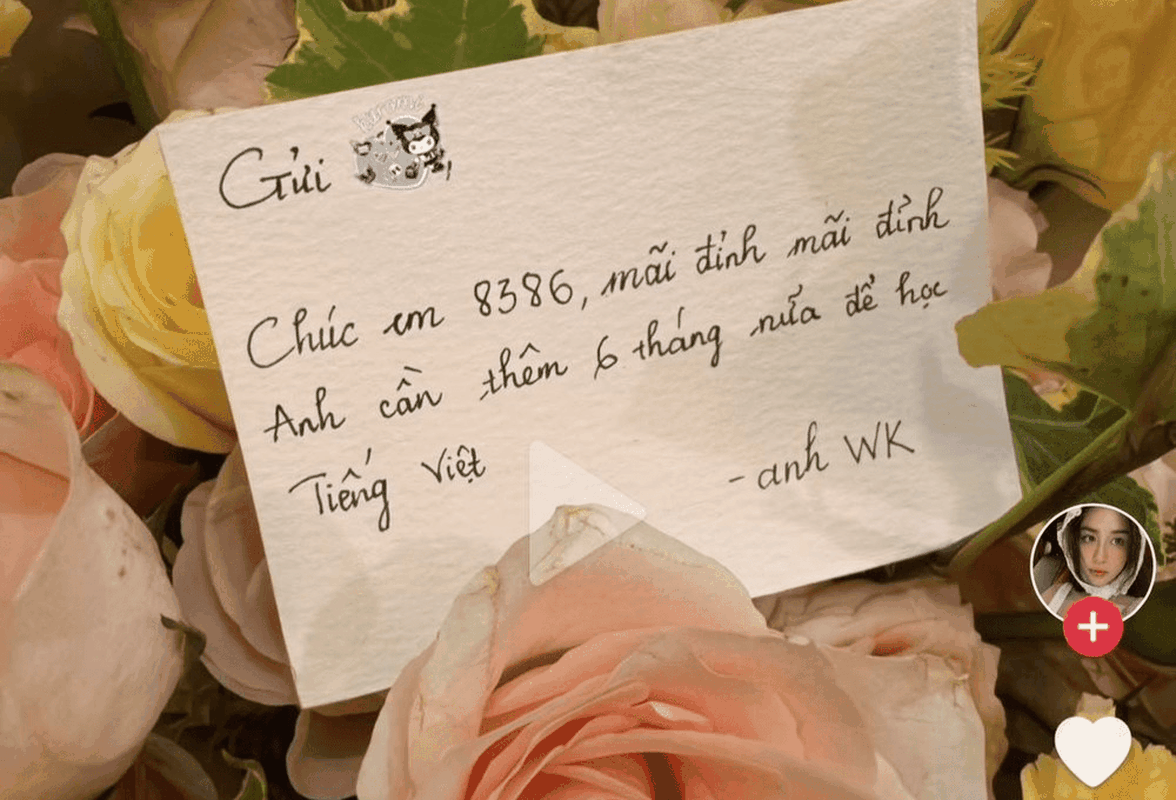 Gửi
kuromi
Chúc em 8386, mãi đỉnh mãi đỉnh
Anh cần thêm 6 tháng nữa để học
Tiếng Việt
- anh WK